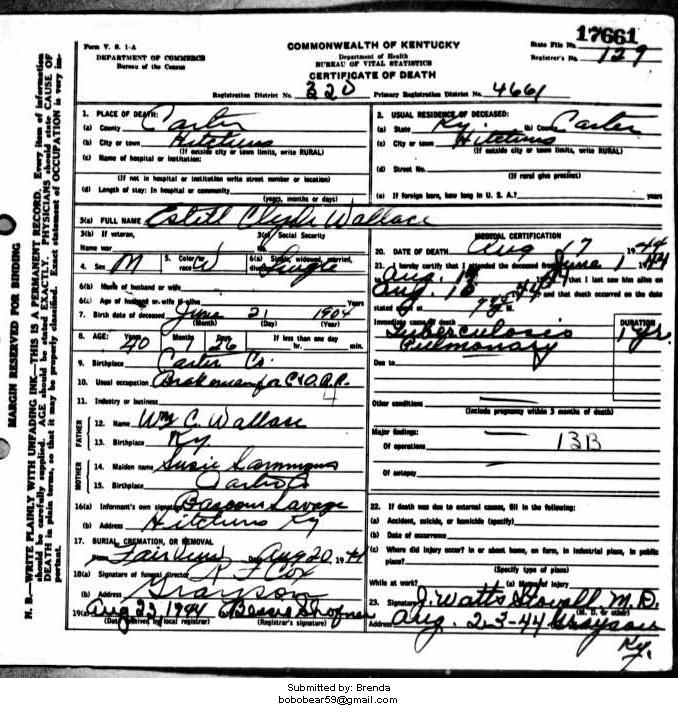 17661
Form V. S. 1-A
COMMONWEALTH OF KENTUCKY
State File No.
DEPARTMENT OF COMMERCE
Bureau of the Census
Department of Health
BUREAU OF VITAL STATISTICS
Registrar's No. 129
CERTIFICATE OF DEATH
Registration District No. 320 Primary Registration District No. 4661
MARGIN RESERVED FOR BINDING
N. B.—WRITE PLAINLY WITH UNFADING INK—THIS IS A PERMANENT RECORD. Every item of information
should be carefully supplied. AGE should be stated EXACTLY. PHYSICIANS should state CAUSE OF
DEATH in plain terms, so that it may be properly classified. Exact statement of OCCUPATION is very im-
portant.
1. PLACE OF DEATH:
(a) County Carter
(b) City or town Hitchins
(If outside city or town limits, write RURAL)
(c) Name of hospital or institution:
(If not in hospital or institution write street number or location)
(d) Length of stay: In hospital or community
(years, months or days)
2. USUAL RESIDENCE OF DECEASED:
(a) State Ky. (b) County Carter
(c) City or town Hitchins
(If outside city or town limits, write RURAL)
(d) Street No.
(If rural give precinct)
(e) If foreign born, how long in U. S. A.? years
3(a) FULL NAME Estill Clyde Wallace
3(b) If veteran,
Name war
3(c) Social Security
No.
4. Sex M 5. Color or race W 6(a) Single, widowed, married, divorced Single
6(b) Name of husband or wife
6(c) Age of husband or wife if alive Years
7. Birth date of deceased June 21 1904
(Month) (Day) (Year)
8. AGE: Years 40 Months 1 Days 26 If less than one day
hr. min.
9. Birthplace Carter Co.
10. Usual occupation Brakeman for C & O. R.R.
11. Industry or business
4
FATHER
12. Name Wm C. Wallace
13. Birthplace Ky
MOTHER
14. Maiden name Susie Sammons
15. Birthplace Carter Co
16(a) Informant's own signature Bascom Savage
(b) Address Hitchins Ky
17. BURIAL, CREMATION, OR REMOVAL
Place Fairview Date Aug 20, 1944
18(a) Signature of funeral director R F Cox
(b) Address Grayson
19(a) Aug 22, 1944 Bessie Shofner
(Date received by local registrar) (Registrar's signature)
MEDICAL CERTIFICATION
20. DATE OF DEATH Aug 17 1944
21. I hereby certify that I attended the deceased from June 1 1944
Aug. 44 that I last saw him alive on
Aug. 16 44 and that death occurred on the date
stated above at M.
Immediate cause of death DURATION
Tuberculosis 1 yr.
Pulmonary
Due to
Other conditions
(Include pregnancy within 3 months of death)
Major findings:
Of operations 13B
Of autopsy
22. If death was due to external causes, fill in the following:
(a) Accident, suicide, or homicide (specify)
(b) Date of occurrence
(c) Where did injury occur? In or about home, on farm, in industrial place, in public
place?
(Specify type of place)
While at work? (e) Means of injury
23. Signature J. Watts Stovall M. D.
(M. D. or other)
Address Aug. 23-44 Grayson
Ky.
Submitted by: Brenda
bobobear59@gmail.com